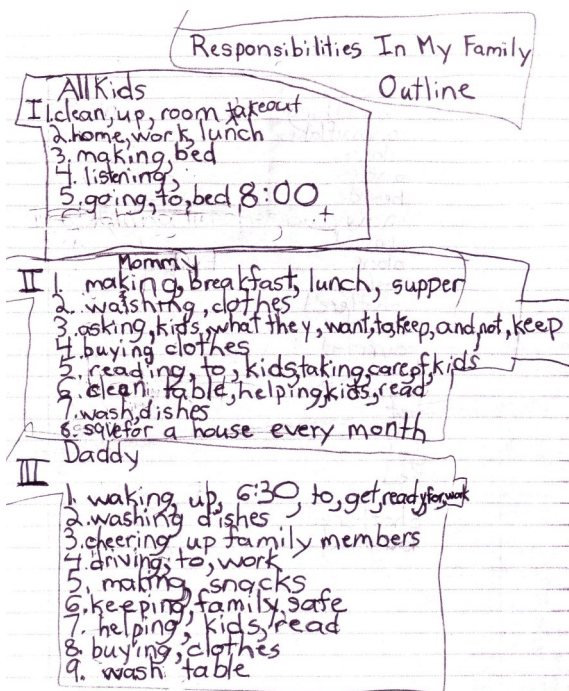 Responsibilities In My Family
Outline
All Kids
I 1. clean, up, room takeout
2. home, work, lunch
3. making, bed
4. listening,
5. going, to, bed 8:00
Mommy
II 1. making, breakfast, lunch, supper
2. waishing, clothes
3. asking, kids, what they, want, to, keep, and, not, keep
4. buying clothes
5. reading, to, kids, taking, care, of, kids
6. clean table, helping, kids, read
7. wash, dishes
8. save for a house every month
Daddy
III
1. waking, up, 6:30, to, get, ready, for, work
2. washing dishes
3. cheering up family members
4. driving, to, work
5. making, snacks
6. keeping, family, safe
7. helping, kids, read
8. buying, clothes
9. wash table